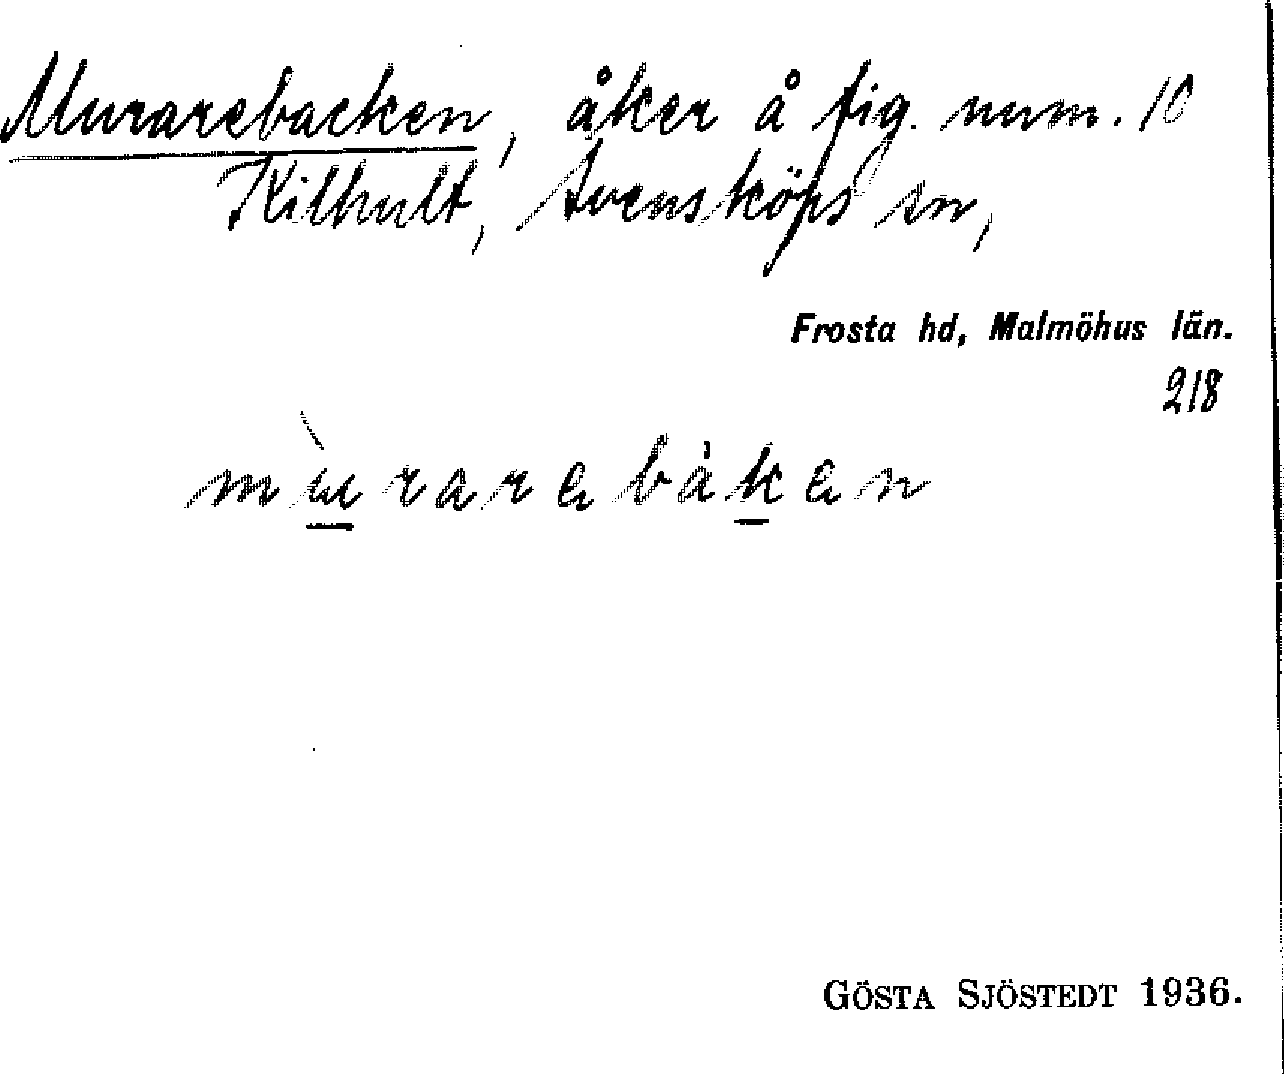 Murarebacken, åker å fig. num. 10
Kilhult, Svensköps sn,
Frosta hd, Malmöhus län.
218
mùrarebàken
GÖSTA SJÖSTEDT 1936.